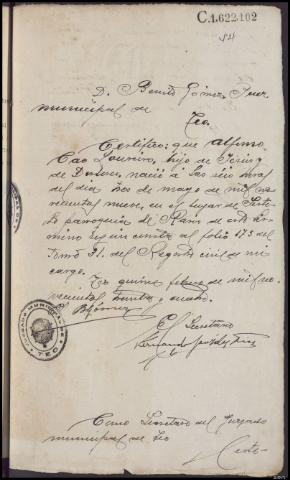 C.1.622.102
84
D. Benito Gómez, Juez
municipal de
Teo.
Certifico: que Alfonso
Cao Loureiro, hijo de Jesús y
de Dolores, nació a las seis horas
del día dos de mayo de mil no-
vecientos nueve, en el lugar de
parroquia de Raris de este tér-
mino según consta al folio 173 del
Tomo 31 del Registro civil de mi
cargo.
Teo quince febrero de mil no-
vecientos treinta y cuatro.
B. Gómez
El Secretario
Como Secretario del Juzgado
municipal de Teo
JUZGADO MUNICIPAL DE TEO